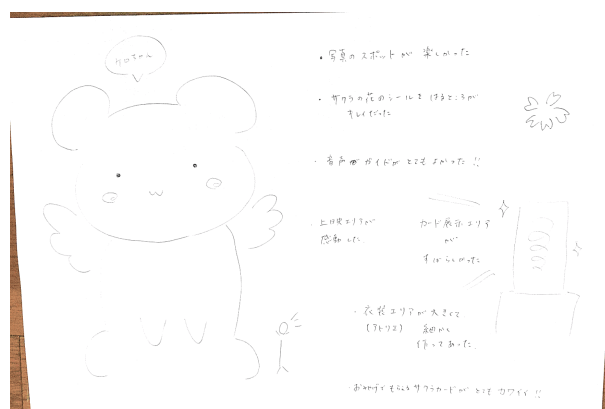 ケロちゃん
・写真のスポットが 楽しかった
・サクラの花のシールを はるところが
キレイだった
・音声ガイドが とても よかった !!
・上映エリアが
感動した.
カード展示エリア
が
すばらしかった
・衣装エリアが大きくて
(アトリエ) 細かく
作ってあった.
・おみやげでもらえるサクラカードが とても カワイイ !!